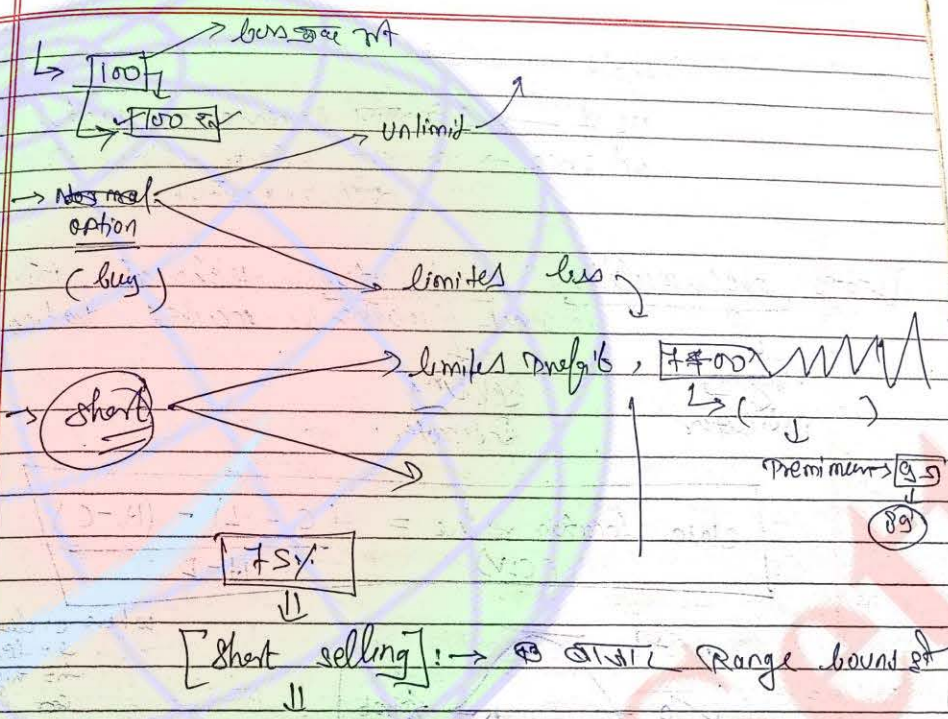 loss
100
100
unlimit
Normal
option
(buy)
limites loss
limites profit, 7400
short
( )
premimum
89
75%
[Short selling] :→ बाजार Range bound